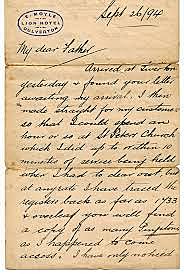 E. MOYLE
LION HOTEL
DULVERTON
Sept 26/94
My dear Father
Arrived at Tiverton
yesterday & found your letter
awaiting my arrival. I then
made straight for my customer
so that I could spend an
hour or so at St Peter Church
which I did up to within 10
minutes of service being held
when I had to clear out, but
at any rate I have traced the
registers back as far as 1733
& overleaf you will find
a copy of as many Symptons
as I happened to come
across. I have only noticed